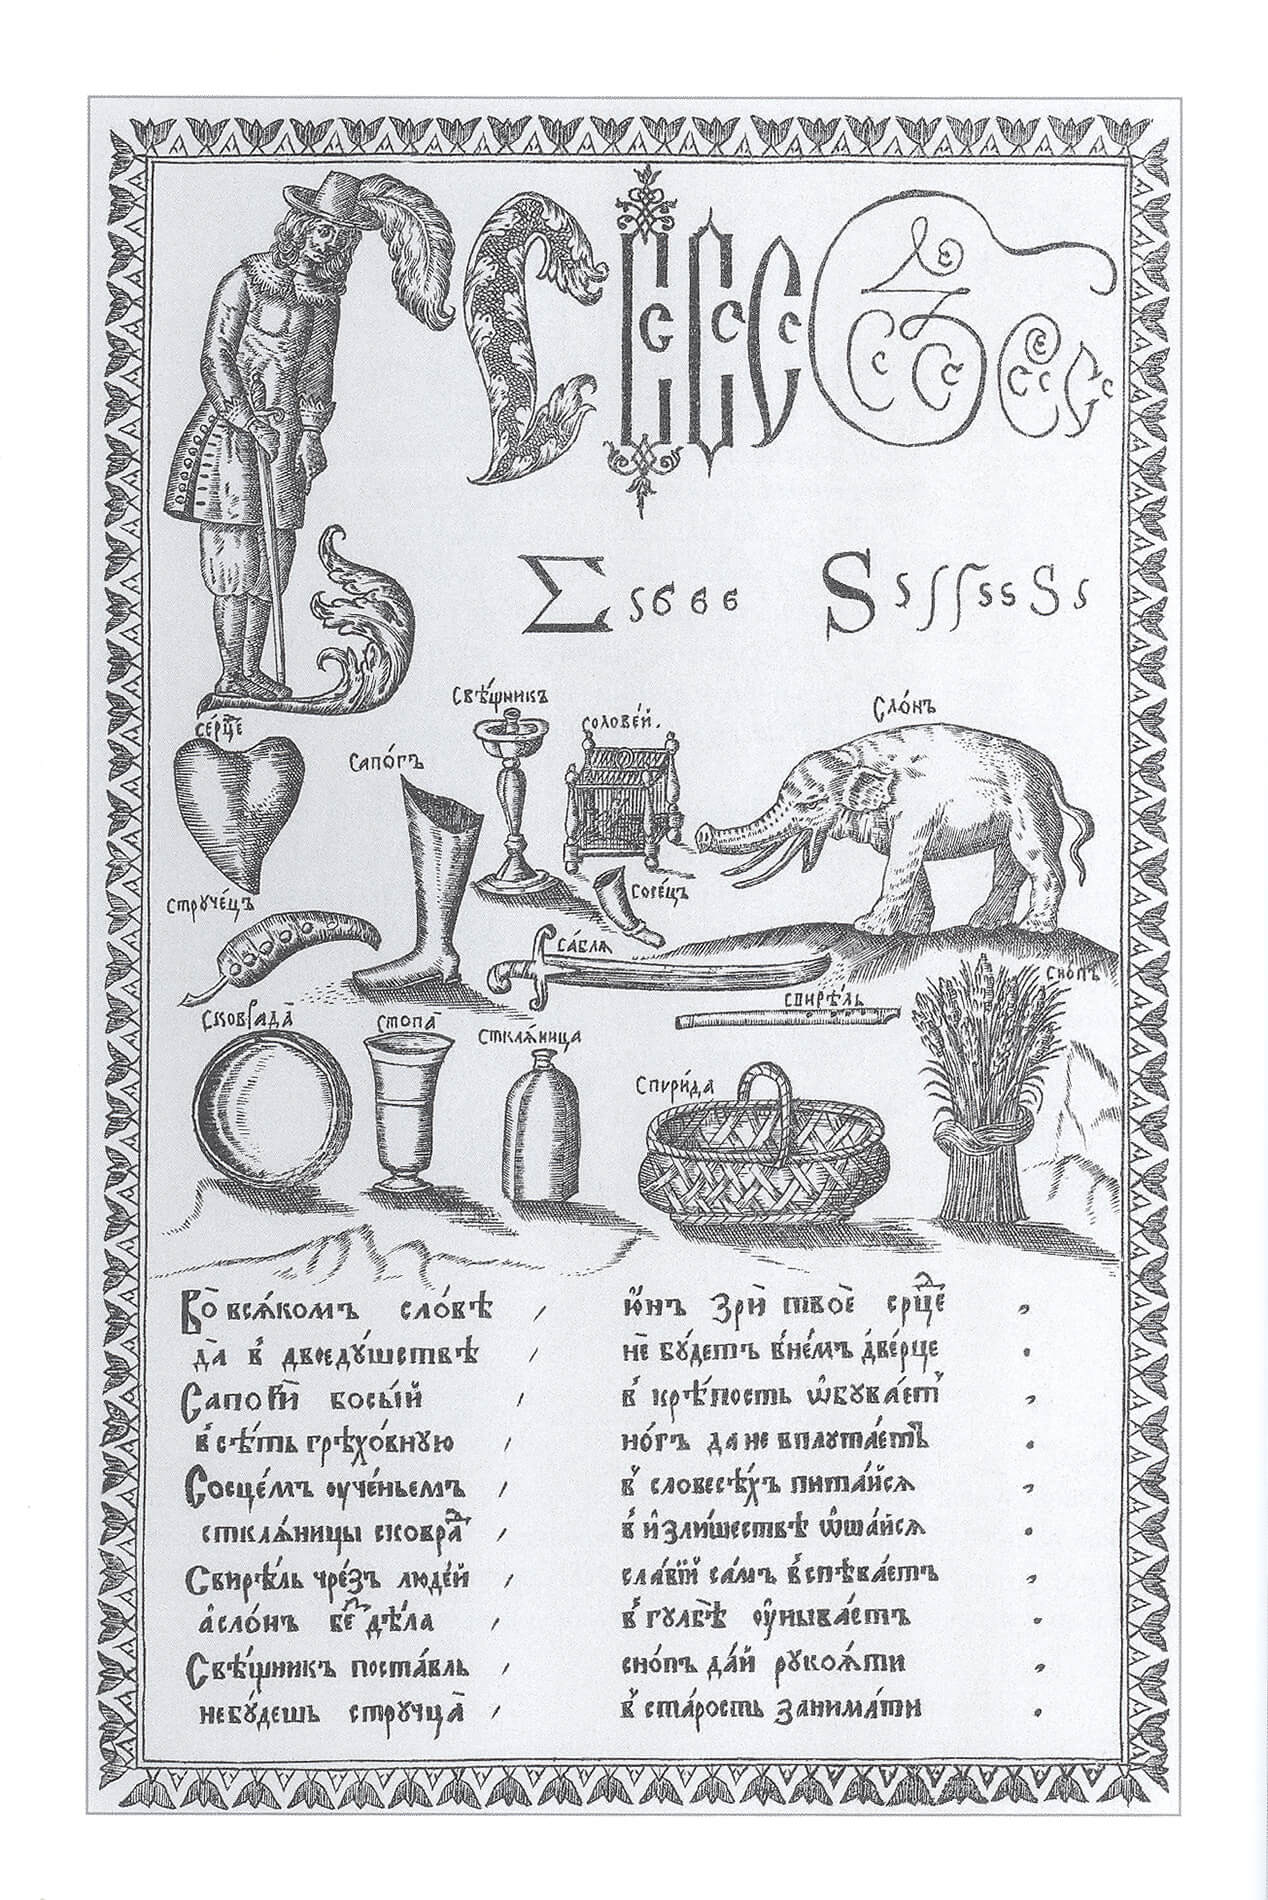 С С С С С С С С С С С С С С С С С С
Σ ς б б б S s ſ ſ s s S s
Свѣ́щникъ
соловéй.
Слóнъ
Сéрⷣце
Сапóгъ
Стручéцъ
Сосéцъ
Сáблѧ
Снопъ
свирѣ́ль
Сковрадà
Стопà
Стклѧ́ница
Спири́да
Во̀ всѧ́комъ слóвѣ , и҆́нъ зрѝ твоѐ срⷣце ,
дà в̾ двоедýшствѣ , не бýдетъ в̾нéмъ двéрце .
Сапогѝ босы́й , в̾ крѣ́пость ѡ҆бувáетъ ,
в̾ сѣ́ть грѣхóвную , нóгъ да не вплутáетъ .
Сосцéмъ ѹчéньемъ , в̾ словесѣ́хъ питáйсѧ ,
стклѧ́ницы сковраⷣ , в̾ и҆зли́шествѣ ѿшáйсѧ .
Свирѣ́ль чрéзъ людéй , слáвїй сáмъ в̾спѣвáетъ ,
а҆ слóнъ беⷥ дѣ́ла , в̾ гулбѣ̀ ѹ҆нывáетъ .
Свѣ́щникъ постáвль , снóпъ дáй рукоѧ́ти ,
небýдешь стручцà , в̾ стáрость занимáти .